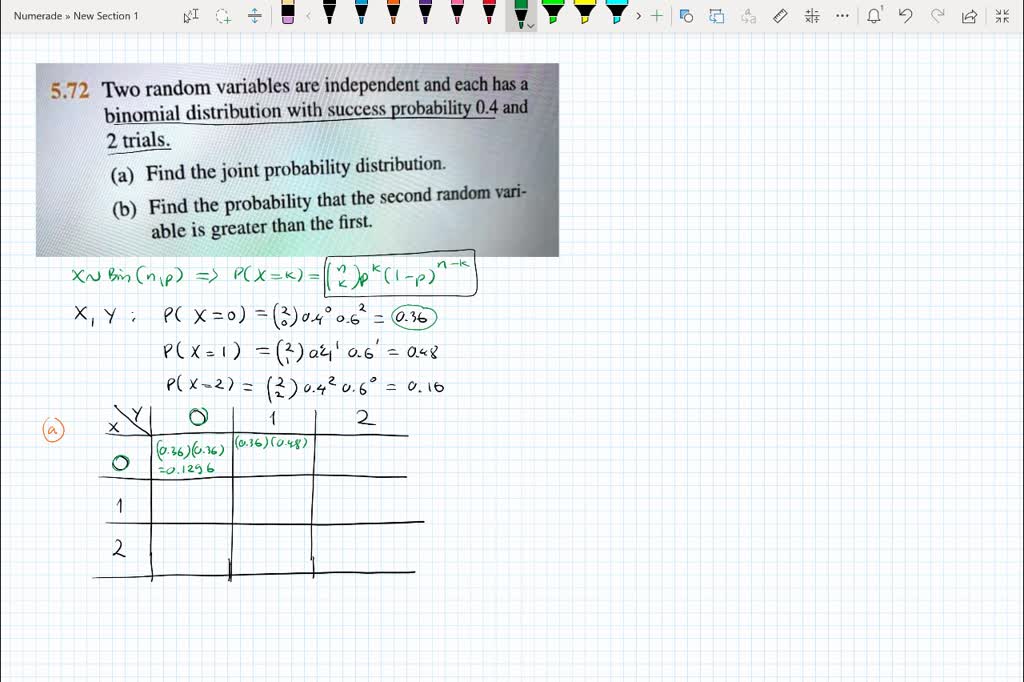 Numerade » New Section 1
5.72 Two random variables are independent and each has a
binomial distribution with success probability 0.4 and
2 trials.
(a) Find the joint probability distribution.
(b) Find the probability that the second random vari-
able is greater than the first.
X~Bin(n,p) => P(X=k) = (n k) p^k (1-p)^n-k
X, Y : P(X=0) = (2 0) 0.4^0 0.6^2 = 0.36
P(X=1) = (2 1) 0.4^1 0.6^1 = 0.48
P(X=2) = (2 2) 0.4^2 0.6^0 = 0.16
a X Y 0 1 2
0 (0.36)(0.36) (0.36)(0.48)
=0.1296
1
2